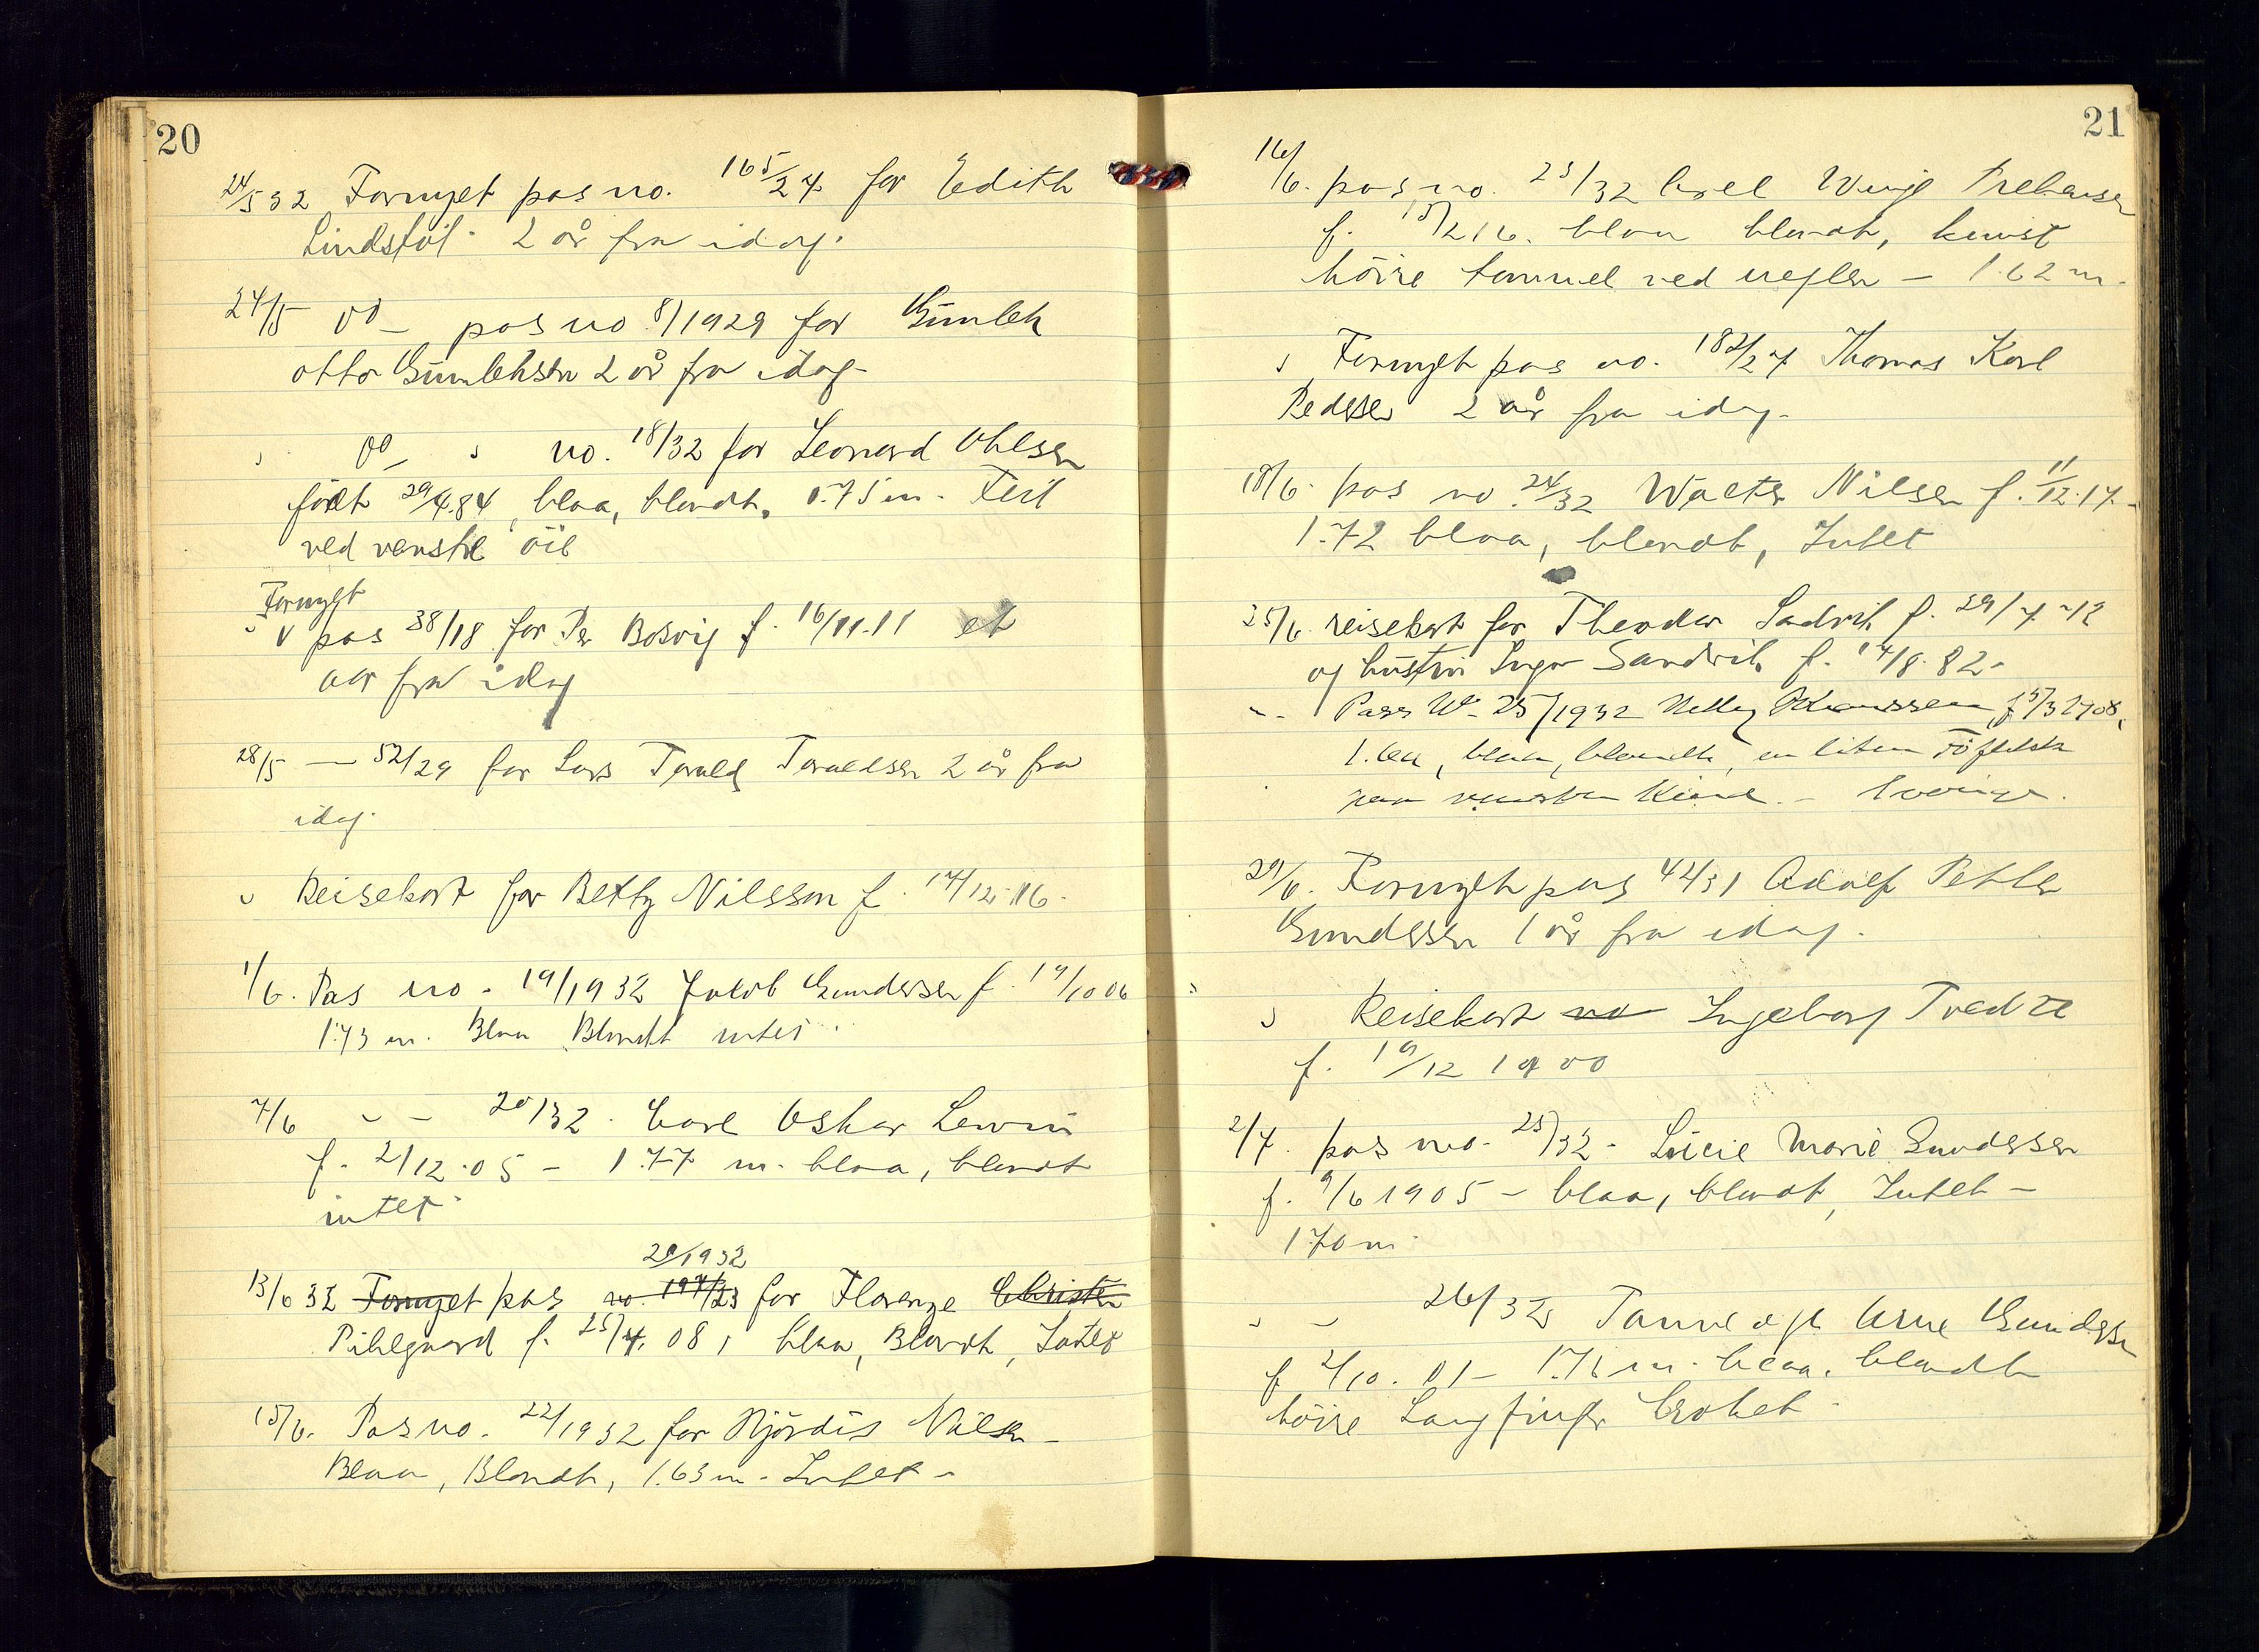 20
24/5 32 Fornyet pas no. 165/24 for Edith
Lindstøl 2 år fra idag.
24/5 do – pas no 8/1929 for Gunleh
otto Gunlehsen 2 år fra idag.
" do – " no. 18/32 for Leonard Ohlsen
født 29/4.84, blaa, blondt, 1.75 m.
ved venstre öie
Fornyet
" pas 38/18 for Per f. 16/11.11 et
aar fra idag
28/5 – 52/29 for Lars Torald Toraldsen 2 år fra
idag.
" Reisekort for Betty Nilsson f. 17/12-16.
1/6. Pas no. 19/1932 Jakob Gundersen f. 19/10 06
1.73 m. Blaa Blondt intet
7/6 " – 20/32. Carl Oskar
f. 2/12.05 – 1.77 m. blaa, blondt
intet
21/1932
13/6 32 Fornyet pas no. 197/23 for Florenze Christen
Pihlgaard f. 25/4. 08, blaa, Blondt, Intet
15/6. Pas no. 22/1932 for Hjördis Nilsen –
Blaa, Blondt, 1.63 m. Intet –
21
16/6. pas no. 23/32 Axel
f. 15/2 16. blaa blondt,
höire tommel ved neglen – 1.62 m.
" Fornyet pas no. 182/27 Thomas Karl
Pedersen 2 år fra idag.
18/6. pas no. 24/32 Walter Nilsen f. 11/12.17 –
1.72 blaa, blondt, Intet
25/6. reisekort for Theodor f. 29/7 72
og hustru Inga Sandvik f. 14/8.82 –
" – Pass No 25/1932 Nelly f.
blaa, blondt, en liten
paa venstre Kind. – Sverige.
29/6. Fornyet pas 42/31 Adolf Petter
Gundersen 1 år fra idag.
" Reisekort no Ingeborg Tvedte
f. 19/12 1900
2/7. pas no. 25/32. Lucie Marie Gundersen
f. 9/6 1905 – blaa, blondt, Intet –
1.70 m.
" – 26/32 Arne Gundersen
f 2/10. 01 – 1.76 m. blaa. blondt
höire Langfinger Croket.